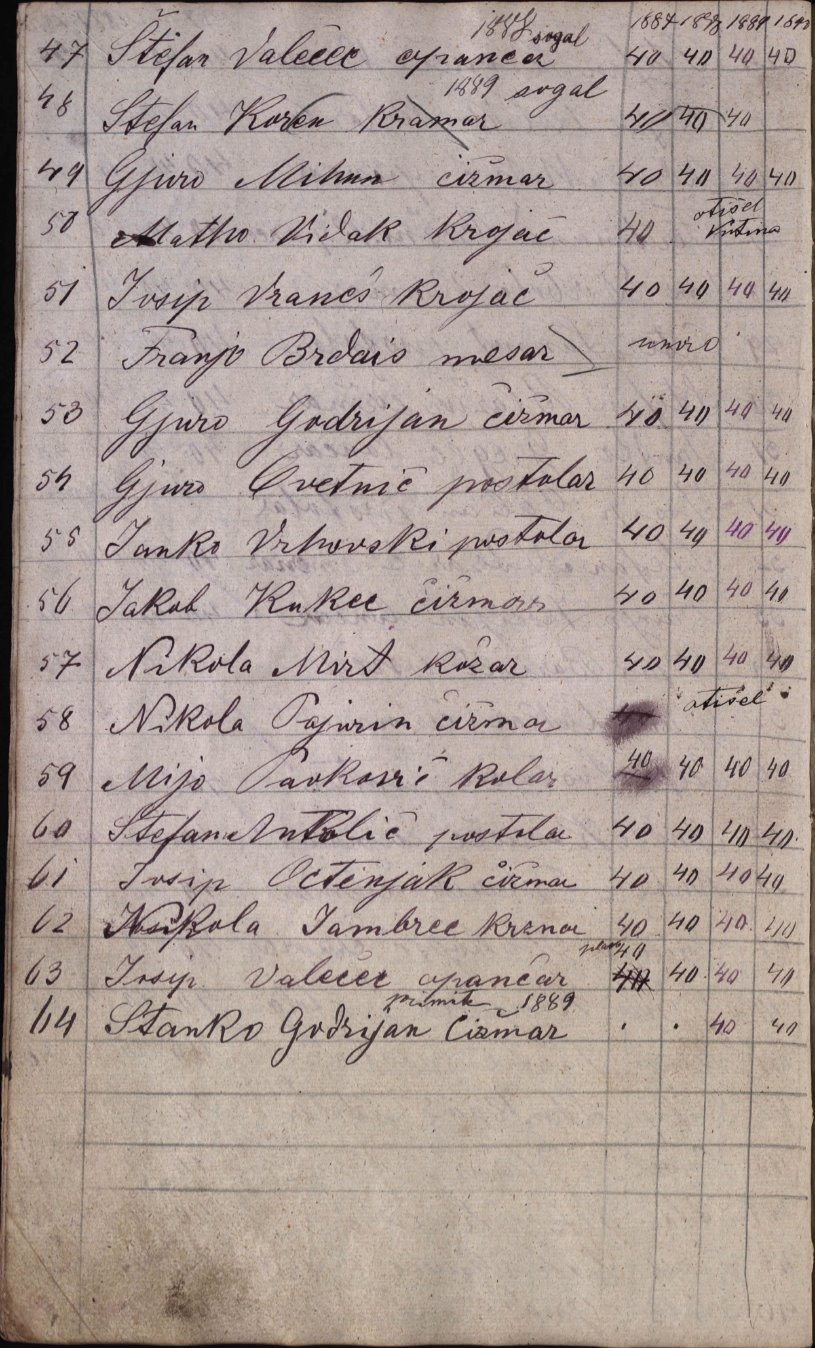 1887 1888 1889 1890
188 sogal
47 Štefan Valečec opančar 40 40 40 40
1889 sogal
48 Stefan Koren Kramar 40 40 40
49 Gjuro Mihun čižmar 40 40 40 40
otišel
50 Matho Vidak Krojač 40 Kutina
51 Josip Vraněš Krojač 40 40 40 40
52 Franjo Brdais mesar umro
53 Gjuro Godrijan čižmar 40 40 40 40
54 Gjuro Cvetnič postolar 40 40 40 40
55 Janko Vrhovski postolar 40 40 40 40
56 Jakob Kukec čižmar 40 40 40 40
57 Nikola Mirt kožar 40 40 40 40
58 Nikola Pajurin čižmar 40 otišel
59 Mijo Pavković kolar 40 40 40 40
60 Stefan Antolič postolar 40 40 40 40
61 Josip Octenjak čižmar 40 40 40 40
62 Nikola Jambrec krznar 40 40 40 40
40
63 Josip Valečec opančar 40 40 40 40
1889
64 Stanko Godrijan čižmar . . 40 40